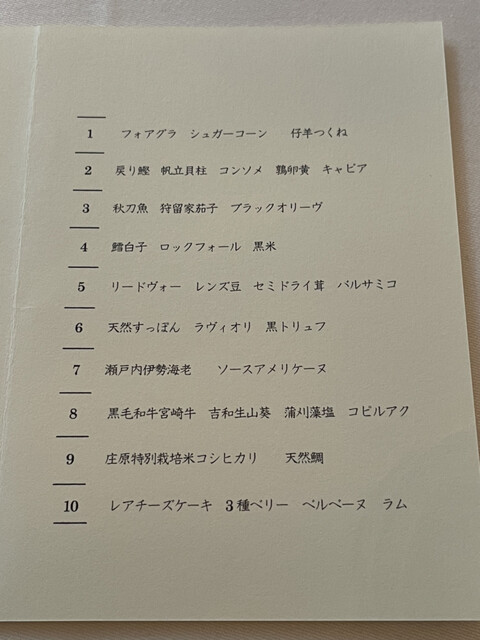 1 フォアグラ シュガーコーン 仔羊つくね
2 戻り鰹 帆立貝柱 コンソメ 鶉卵黄 キャビア
3 秋刀魚 狩留家茄子 ブラックオリーヴ
4 鱈白子 ロックフォール 黒米
5 リードヴォー レンズ豆 セミドライ茸 バルサミコ
6 天然すっぽん ラヴィオリ 黒トリュフ
7 瀬戸内伊勢海老 ソースアメリケーヌ
8 黒毛和牛宮崎牛 吉和生山葵 蒲刈藻塩 コピルアク
9 庄原特別栽培米コシヒカリ 天然鯛
10 レアチーズケーキ 3種ベリー ベルベーヌ ラム